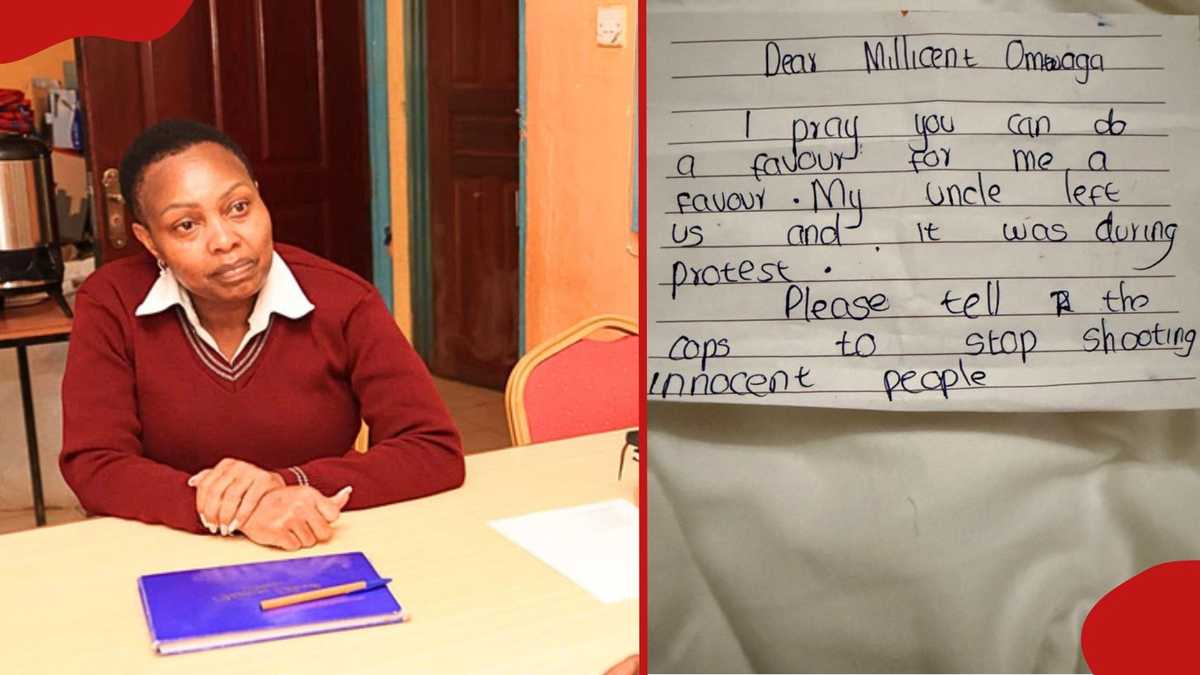 Dear Millicent Omwaga
I pray you can do
a favour for me a
favour. My uncle left
us and. it was during
protest.
Please tell the
cops to stop shooting
innocent people